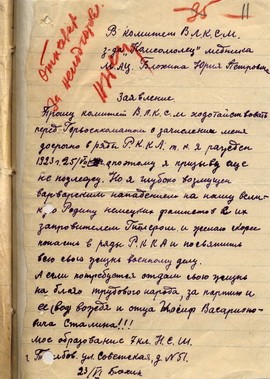 35 11
Отказать
за
В комитет В Л К С М.
з-да "Комсомолец" медника
М.Ац. Блохина Юрия Петрович
Заявление
Прошу комитет В.Л.К.С.М. ходатайствовать
перед Горвоенкоматом о зачислении меня
досрочно в ряды Р.К.К.А. т.к. я родился
1923 г. 25/ поэтому я призыву еще
не подлежу. Но я глубоко возмущен
варварским нападением на нашу вели-
кую Родину немецких фашистов и их
Гитлером. и желаю скорее
попасть в ряды Р К К А и посвятить
всю свою жизнь военному делу.
А если потребуется отдам свою жизнь
на благо трудового народа, за партию и
вождя и отца Иосиф Васарионо-
вича Сталина!!!
мое образование 7 кл. Н.С.Ш.
Тамбов. ул. Советская, д №51.
23/VI